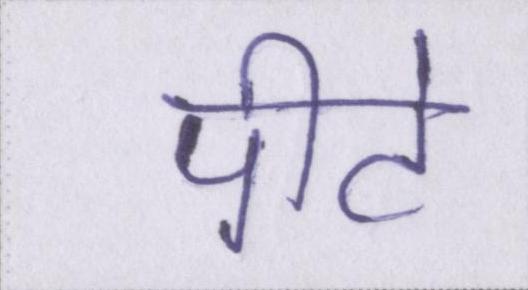 पीटे